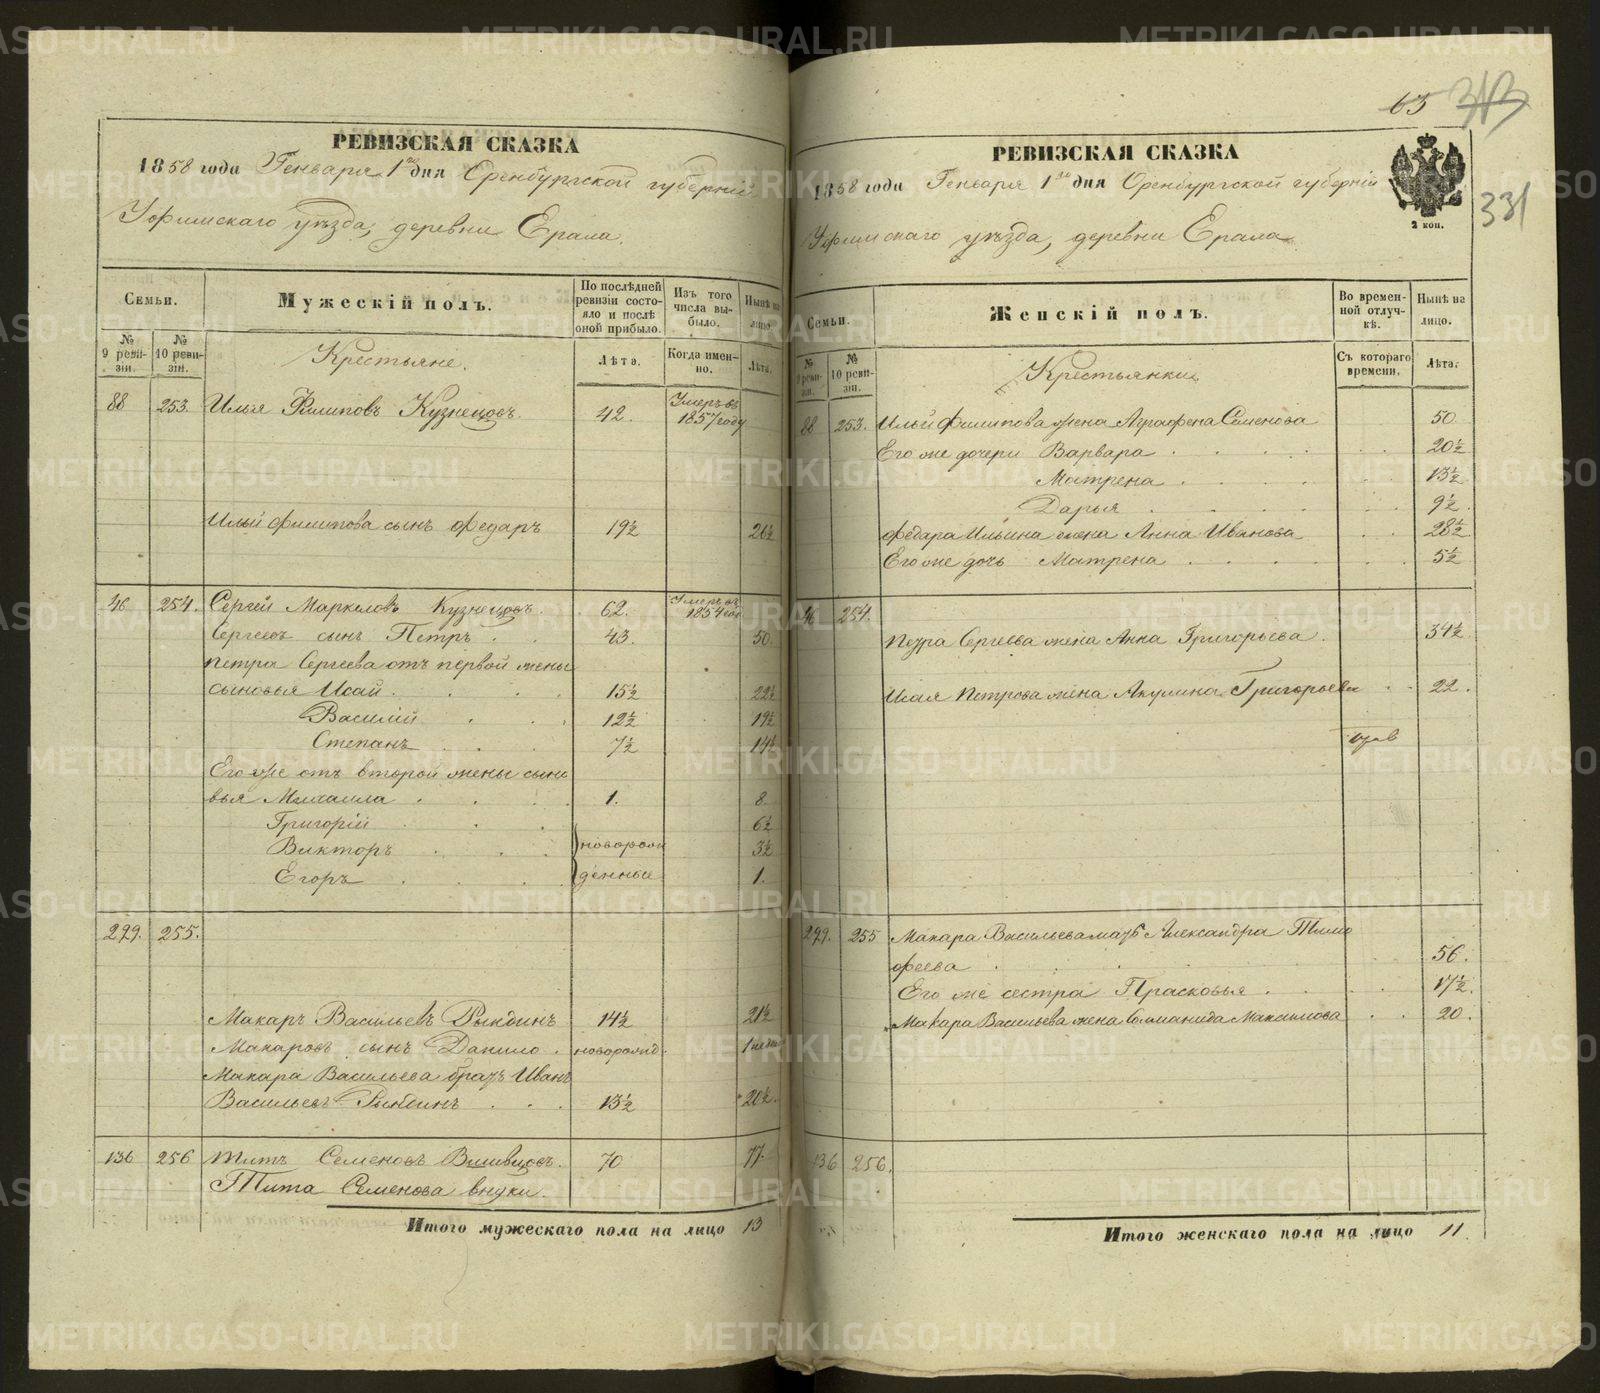 РЕВИЗСКАЯ СКАЗКА
1858 года Генваря 1го дня Оренбургской губерніи
Уфимскаго уѣзда, деревни Ерала.
Семьи.
Мужескій полъ.
По послѣдней ревизіи состояло и послѣ оной прибыло.
Изъ того числа выбыло.
Нынѣ на лицо.
№ 9 ревизіи.
№ 10 ревизіи.
Крестьяне.
Лѣта.
Когда именно.
Лѣта.
88 253. Илья Филиповъ Кузнецовъ. 42. Умеръ въ 1857 году
Ильи Филипова сынъ Федаръ 19½
46 254. Сергей Маркеловъ Кузнецовъ. 62. Умеръ въ 1854 год
Сергеевъ сынъ Петръ . 43. 50.
Петра Сергеева отъ первой жены
сыновья Исай . . . 15½ 22½
Василій . . . 12½ 19½
Степанъ . . . 7½ 14½
Его же отъ второй жены сыно
вья Михаила . . . 1. 8.
Григорій . . . 6½
Викторъ . . . новорож 3½
Егоръ . . . денные 1.
299. 255.
Макаръ Васильевъ Рындинъ 14½ 21½
Макаровъ сынъ Данило . новорожд.
Макара Васильева братъ Иванъ
Васильевъ Рындинъ . . . 13½ 20½.
136 256 Титъ Семеновъ 70 77.
Тита Семенова внуки.
Итого мужескаго пола на лицо 13
63
331
РЕВИЗСКАЯ СКАЗКА
1858 года Генваря 1го дня Оренбургской губерніи
2 коп.
Уфимскаго уѣзда, деревни Ерала
Семьи.
Женскій полъ.
Во временной отлучкѣ.
Нынѣ на лицо.
№ 9 ревизіи.
№ 10 ревизіи.
Крестьянки
Съ котораго времени.
Лѣта.
88 253. Ильи Филипова жена Аграфена Семенова 50
Его же дочери Варвара . . . 20½
Матрена . . . 13½
Дарья . . . 9½
Федара Ильина жена Анна Иванова . . 28½
Его же дочь Матрена . . . 5½
46 254.
Петра Сергеева жена Анна Григорьева . 34½
Исая Петрова жена Акулина Григорьева . . 22.
299. 255 Макара Васильева мать Александра Тимо
феева . . . 56.
Его же сестра Прасковья . . . 17½.
Макара Васильева жена Соломанида Максимова . . 20.
136 256.
Итого женскаго пола на лицо 11.
METRIKI.GASO-URAL.RU